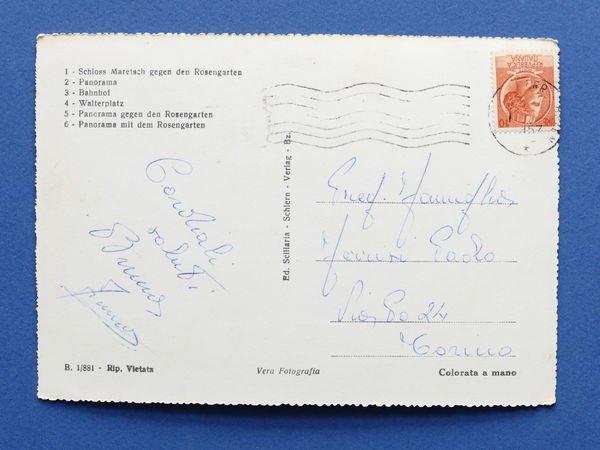 1 - Schloss Maretsch gegen den Rosengarten
2 - Panorama
3 - Bahnhof
4 - Walterplatz
5 - Panorama gegen den Rosengarten
6 - Panorama mit dem Rosengarten
Cordiali
saluti
Bruno
Ed. Sciliaria - Schlern - Verlag - Bz.
Paolo
Via Po 24
Torino
B. 1/881 - Rip. Vietata
Vera Fotografia
Colorata a mano